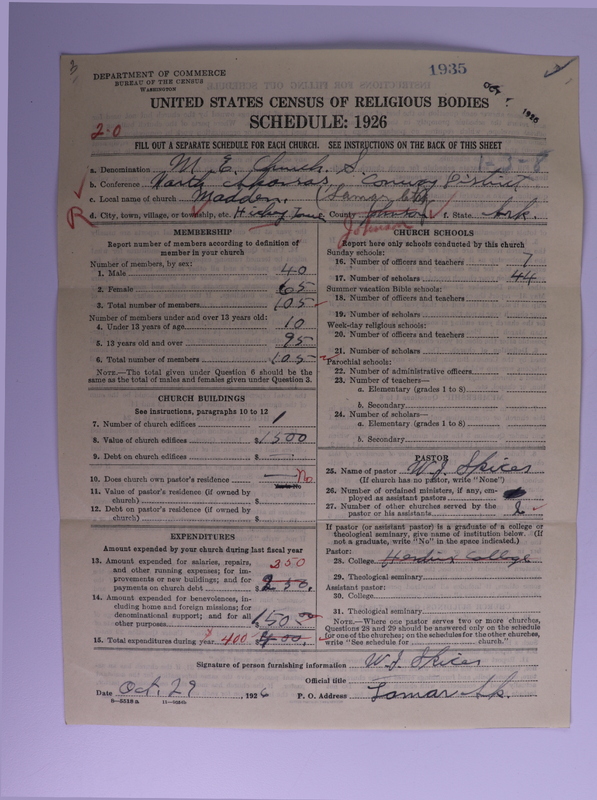 3
DEPARTMENT OF COMMERCE
BUREAU OF THE CENSUS
WASHINGTON
1935
1926
UNITED STATES CENSUS OF RELIGIOUS BODIES
SCHEDULE: 1926
2-0
FILL OUT A SEPARATE SCHEDULE FOR EACH CHURCH. SEE INSTRUCTIONS ON THE BACK OF THIS SHEET
1-3-8
a. Denomination M. E. Church. S.
b. Conference North Arkansas Conway District
c. Local name of church Madden. (Lamar Ct.)
R d. City, town, village, or township, etc. County Johnson f. State Ark.
Johnson
MEMBERSHIP
Report number of members according to definition of member in your church
Number of members, by sex:
1. Male 40
2. Female 65
3. Total number of members 105
Number of members under and over 13 years old:
4. Under 13 years of age 10
5. 13 years old and over 95
6. Total number of members 105
NOTE.—The total given under Question 6 should be the same as the total of males and females given under Question 3.
CHURCH BUILDINGS
See instructions, paragraphs 10 to 12
7. Number of church edifices 1
8. Value of church edifices $1500
9. Debt on church edifices $ —
10. Does church own pastor's residence — No
Yes or No
11. Value of pastor's residence (if owned by church) $
12. Debt on pastor's residence (if owned by church) $
EXPENDITURES
Amount expended by your church during last fiscal year
13. Amount expended for salaries, repairs, and other running expenses; for improvements or new buildings; and for payments on church debt $ 250.
250
14. Amount expended for benevolences, including home and foreign missions; for denominational support; and for all other purposes. 150
15. Total expenditures during year 400 400.
CHURCH SCHOOLS
Report here only schools conducted by this church
Sunday schools:
16. Number of officers and teachers 7
17. Number of scholars 44
Summer vacation Bible schools:
18. Number of officers and teachers
19. Number of scholars
Week-day religious schools:
20. Number of officers and teachers
21. Number of scholars
Parochial schools:
22. Number of administrative officers
23. Number of teachers—
a. Elementary (grades 1 to 8)
b. Secondary
24. Number of scholars—
a. Elementary (grades 1 to 8)
b. Secondary
PASTOR
25. Name of pastor W. J. Spicer
(If church has no pastor, write "None")
26. Number of ordained ministers, if any, employed as assistant pastors
27. Number of other churches served by the pastor or his assistants
If pastor (or assistant pastor) is a graduate of a college or theological seminary, give name of institution below. (If not a graduate, write "No" in the space indicated.)
Pastor:
28. College Hendrix College
29. Theological seminary
Assistant pastor:
30. College
31. Theological seminary
NOTE.—Where one pastor serves two or more churches, Questions 28 and 29 should be answered only on the schedule for one of the churches; on the schedules for the other churches, write "See schedule for church."
Signature of person furnishing information W. J. Spicer
Official title
Date Oct. 29, 1926 P. O. Address Lamar Ark.